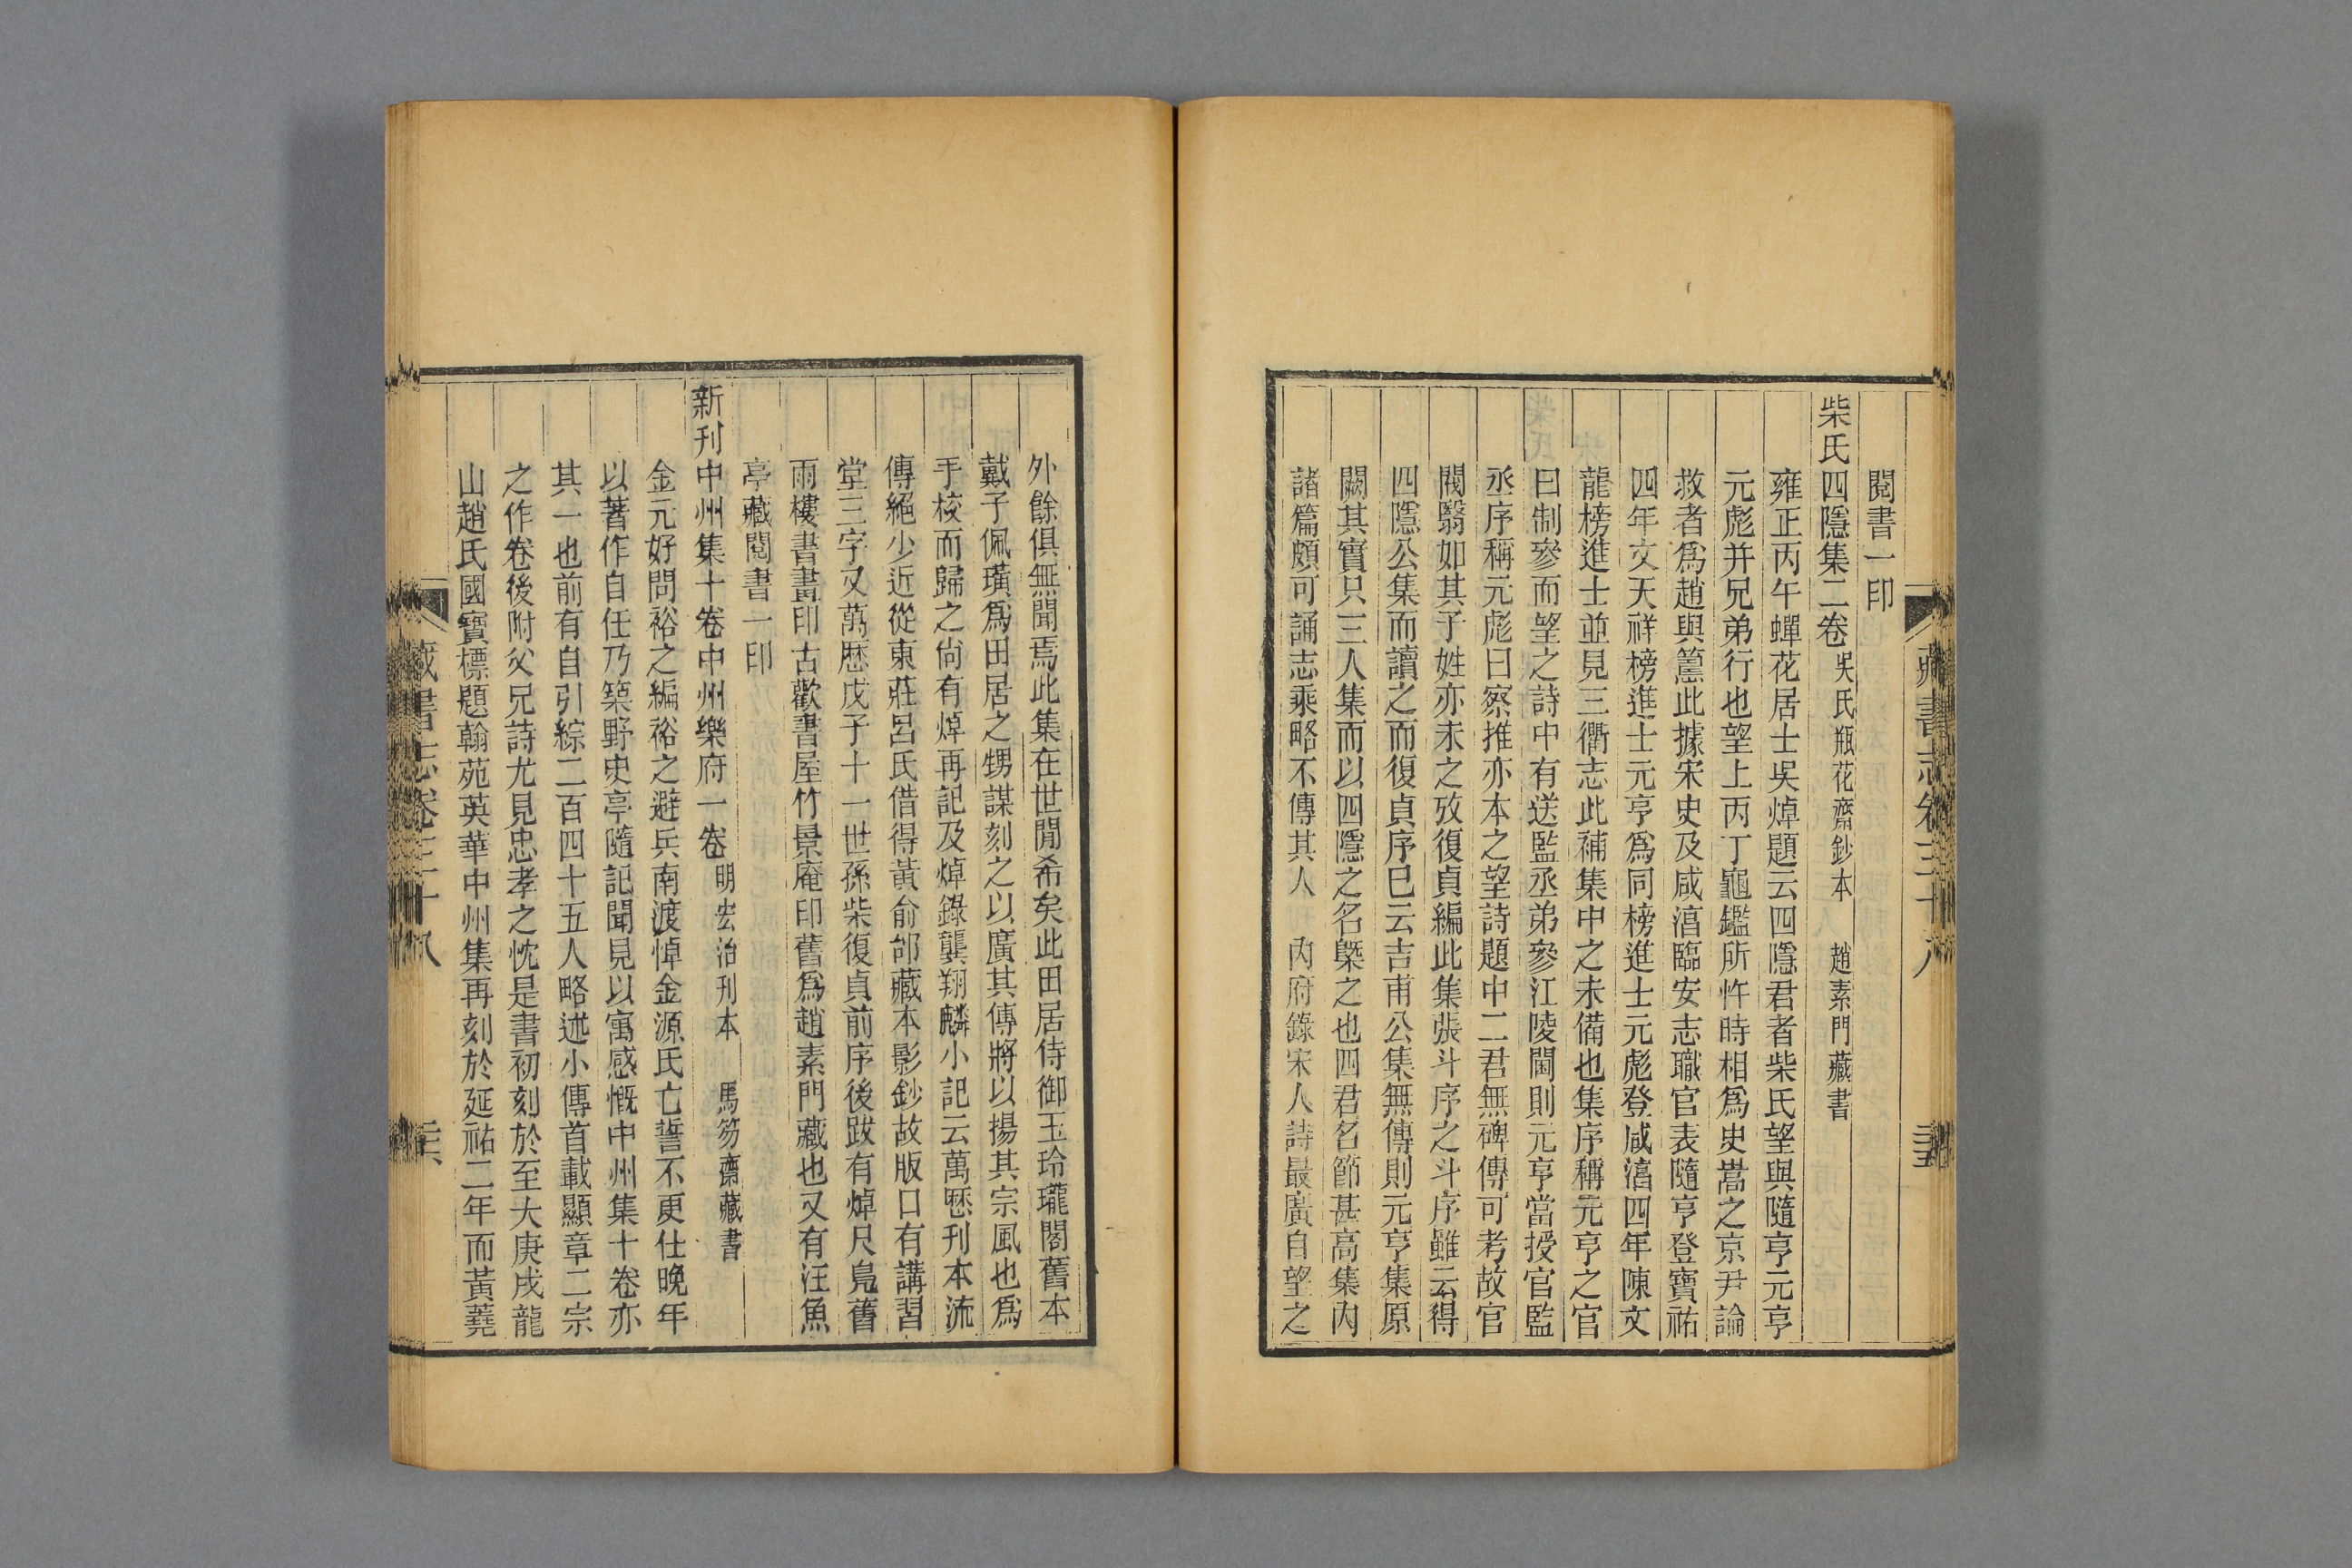 閱書一印
柴氏四隱集二卷 吳氏瓶花齋鈔本 趙素門藏書
雍正丙午蟬花居士吳焯題云四隱君者柴氏望與隨亨元亨
元彪并兄弟行也望上丙丁龜鑑所忤時相爲史嵩之京尹論
救者爲趙與𥲅此據宋史及咸淳臨安志職官表隨亨登寶祐
四年文天祥榜進士元亨爲同榜進士元彪登咸淳四年陳文
龍榜進士並見三衢志此補集中之未備也集序稱元亨之官
曰制參而望之詩中有送監丞弟參江陵閫則元亨當授官監
丞序稱元彪曰察推亦本之望詩題中二君無碑傳可考故官
閥翳如其子姓亦未之攷復貞編此集張斗序之斗序雖云得
四隱公集而讀之而復貞序巳云吉甫公集無傳則元亨集原
闕其實只三人集而以四隱之名槩之也四君名節甚高集內
諸篇頗可誦志乘略不傳其人 內府錄宋人詩最廣自望之
藏書志卷三十八
外餘俱無聞焉此集在世閒希矣此田居侍御玉玲瓏閣舊本
戴子佩璜爲田居之甥謀刻之以廣其傳將以揚其宗風也爲
手校而歸之尙有焯再記及焯錄龔翔麟小記云萬歷刊本流
傳絕少近從東莊呂氏借得黃俞邰藏本影鈔故版口有講習
堂三字又萬歷戊子十一世孫柴復貞前序後跋有焯尺鳧舊
雨樓書畫印古歡書屋竹景庵印舊爲趙素門藏也又有汪魚
亭藏閱書一印
新刊中州集十卷中州樂府一卷 明宏治刊本 馬笏齋藏書
金元好問裕之編裕之避兵南渡悼金源氏亡誓不更仕晚年
以著作自任乃築野史亭隨記聞見以寓感慨中州集十卷亦
其一也前有自引綜二百四十五人略述小傳首載顯章二宗
之作卷後附父兄詩尤見忠孝之忱是書初刻於至大庚戌龍
山趙氏國寶標題翰苑英華中州集再刻於延祐二年而黃蕘
藏書志卷三十八